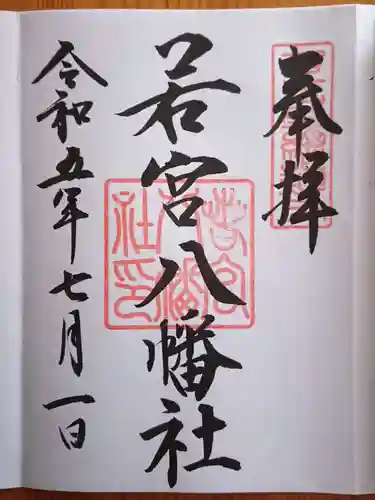 奉拝
若宮八幡社
令和五年七月一日
若宮八幡社印